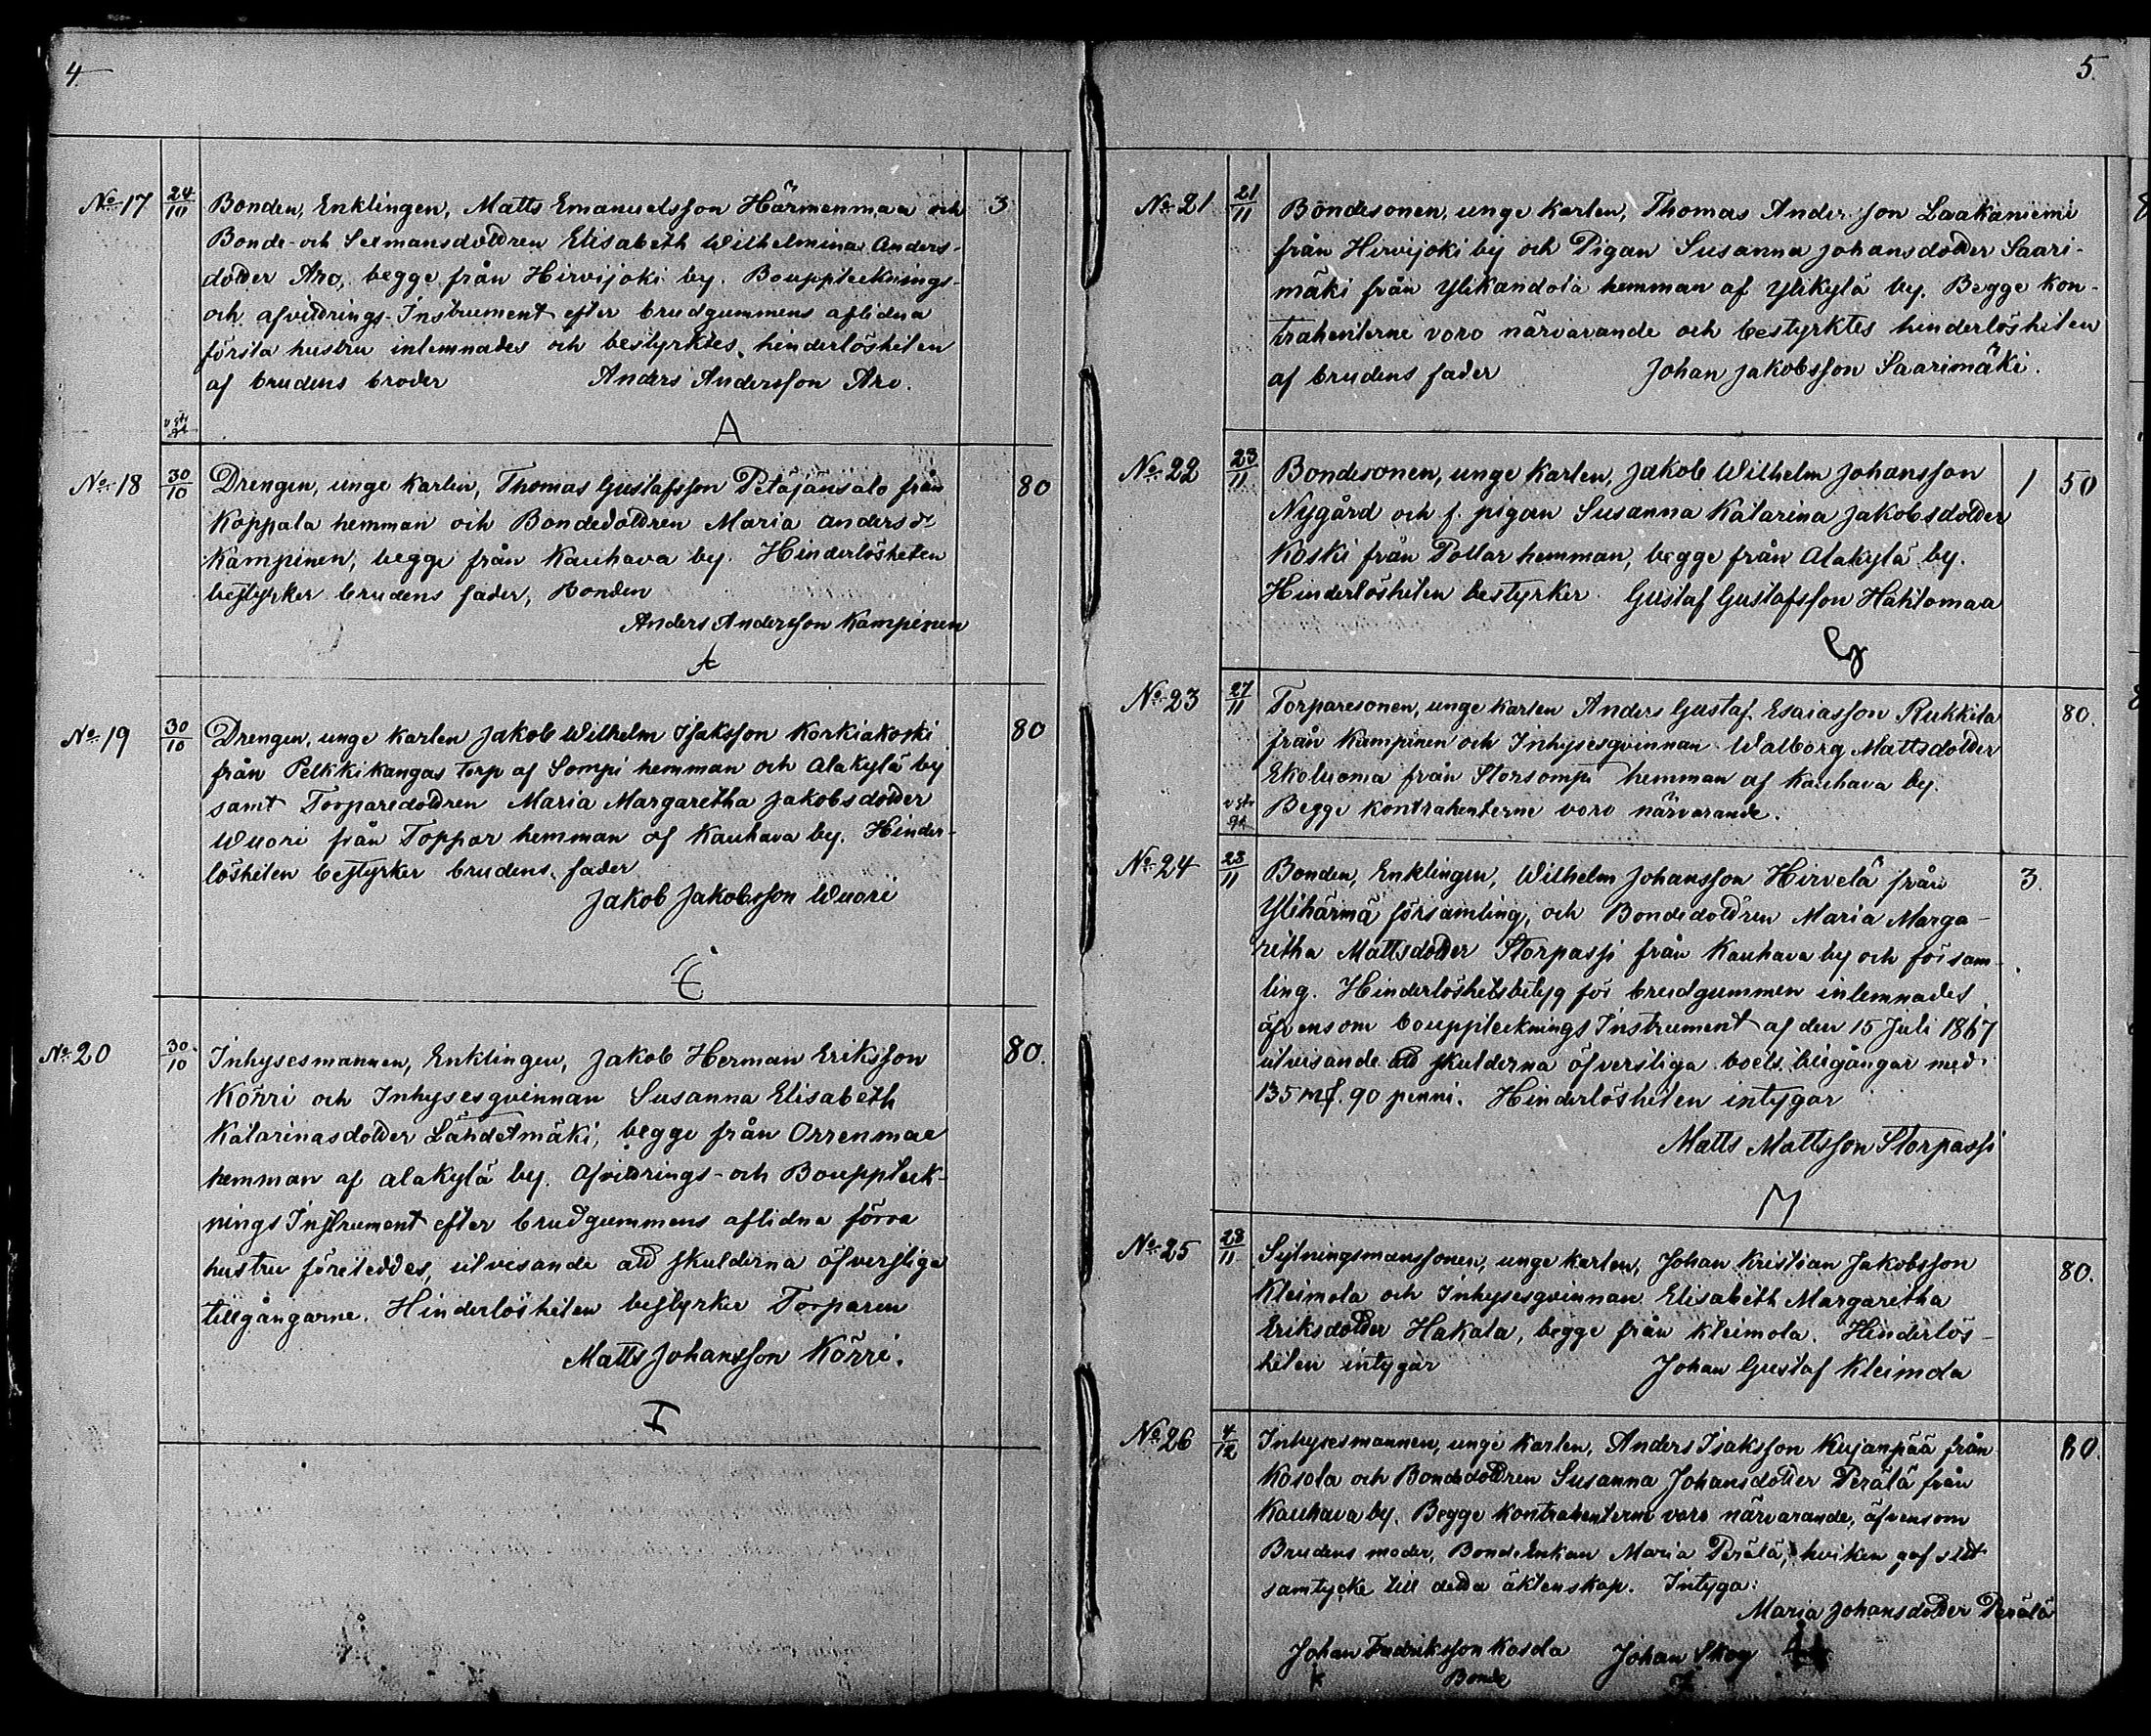 4.
No 17 24/10 Bonden, Enklingen, Matts Emanuelsson Härmänmaa och 3
Bonde- och Sexmansdottren Elisabeth Wilhelmina Anders-
dotter Aro, begge från Hirvijoki by. Bouppteeknings-
och afvittrings-Instrument efter brudgummens aflidna
första hustru inlemnades och bestyrktes hinderlösheten
af brudens broder Anders Andersson Aro.
A
No 18 30/10 Drengen, unge karlen, Thomas Gustafsson Petäjänsalo från 80
Koppala hemman och Bondedottren Maria Andersdr
Kampinen, begge från Kauhava by. Hinderlösheten
bestyrker brudens fader, Bonden
Anders Andersson Kampinen
A
No 19 30/10 Drengen, unge karlen Jakob Wilhelm Isaksson Korkiakoski 80
från Pelkkikangas torp af Sompi hemman och Alakylä by
samt Torparedottren Maria Margaretha Jakobsdotter
Wuori från Toppar hemman af Kauhava by. Hinder-
lösheten bestyrker brudens fader
Jakob Jakobsson Wuori
No 20 30/10 Inhysesmannen, Enklingen, Jakob Herman Eriksson 80.
Körri och Inhysesqvinnan Susanna Elisabeth
Katarinasdotter Lähdetmäki, begge från Orrenmaa
hemman af Alakylä by. Afvittrings- och Bouppteck-
nings Instrument efter brudgummens aflidna förra
hustru företeddes, utvisande att skulderna öfverstiga
tillgångarne. Hinderlösheten bestyrker Torparen
Matts Johansson Körri.
I
5.
No 21 21/11 Bondesonen, unge karlen, Thomas Andersson Laakaniemi
från Hirvijoki by och Pigan Susanna Johansdotter Saari-
mäki från Ylikandola hemman af Ylikylä by. Begge kon-
trahenterne voro närvarande och bestyrktes hinderlösheten
af brudens fader Johan Jakobsson Saarimäki.
No 22 23/11 Bondesonen, unge karlen, Jakob Wilhelm Johansson 1 50
Nygård och f. pigan Susanna Katarina Jakobsdotter
Koski från Pollar hemman, begge från Alakylä by.
Hinderlösheten bestyrker Gustaf Gustafsson Hahtomaa
G
No 23 27/11 Torparesonen, unge karlen Anders Gustaf Esaiasson Rukkila 80.
från Kampinen och Inhysesqvinnan Walborg Mattsdotter
Ekoluoma från Storsompi hemman af Kauhava by.
Begge kontrahenterne voro närvarande.
No 24 28/11 Bonden, Enklingen, Wilhelm Johansson Hirvelä från 3.
Ylihärmä församling, och Bondedottren Maria Marga-
retha Mattsdotter Storpassi från Kauhava by och försam-
ling. Hinderlöshetsbetyg för brudgummen inlemnades
äfvensom bouppteckningsInstrument af den 15 Juli 1867
utvisande att skulderna öfverstiga boets tillgångar med
135 mf. 90 penni. Hinderlösheten intygar
Matts Mattsson Storpassi
M
No 25 28/11 Sytningsmanssonen, unge karlen, Johan Kristian Jakobsson 80.
Kleimola och Inhysesqvinnan Elisabeth Margaretha
Eriksdotter Hakala, begge från Kleimola. Hinderlös-
heten intygar Johan Gustaf Kleimola
No 26 4/12 Inhysesmannen, unge karlen, Anders Isaksson Kujanpää från 80.
Kosola och Bondedottren Susanna Johansdotter Perälä från
Kauhava by. Begge kontrahenterne voro närvarande, äfvensom
Brudens moder, BondeEnkan Maria Perälä, hvilken gaf sitt
samtycke till detta äktenskap. Intyga:
Maria Johansdotter Perälä
Johan Fredriksson Kosola Johan Skog
Bonde